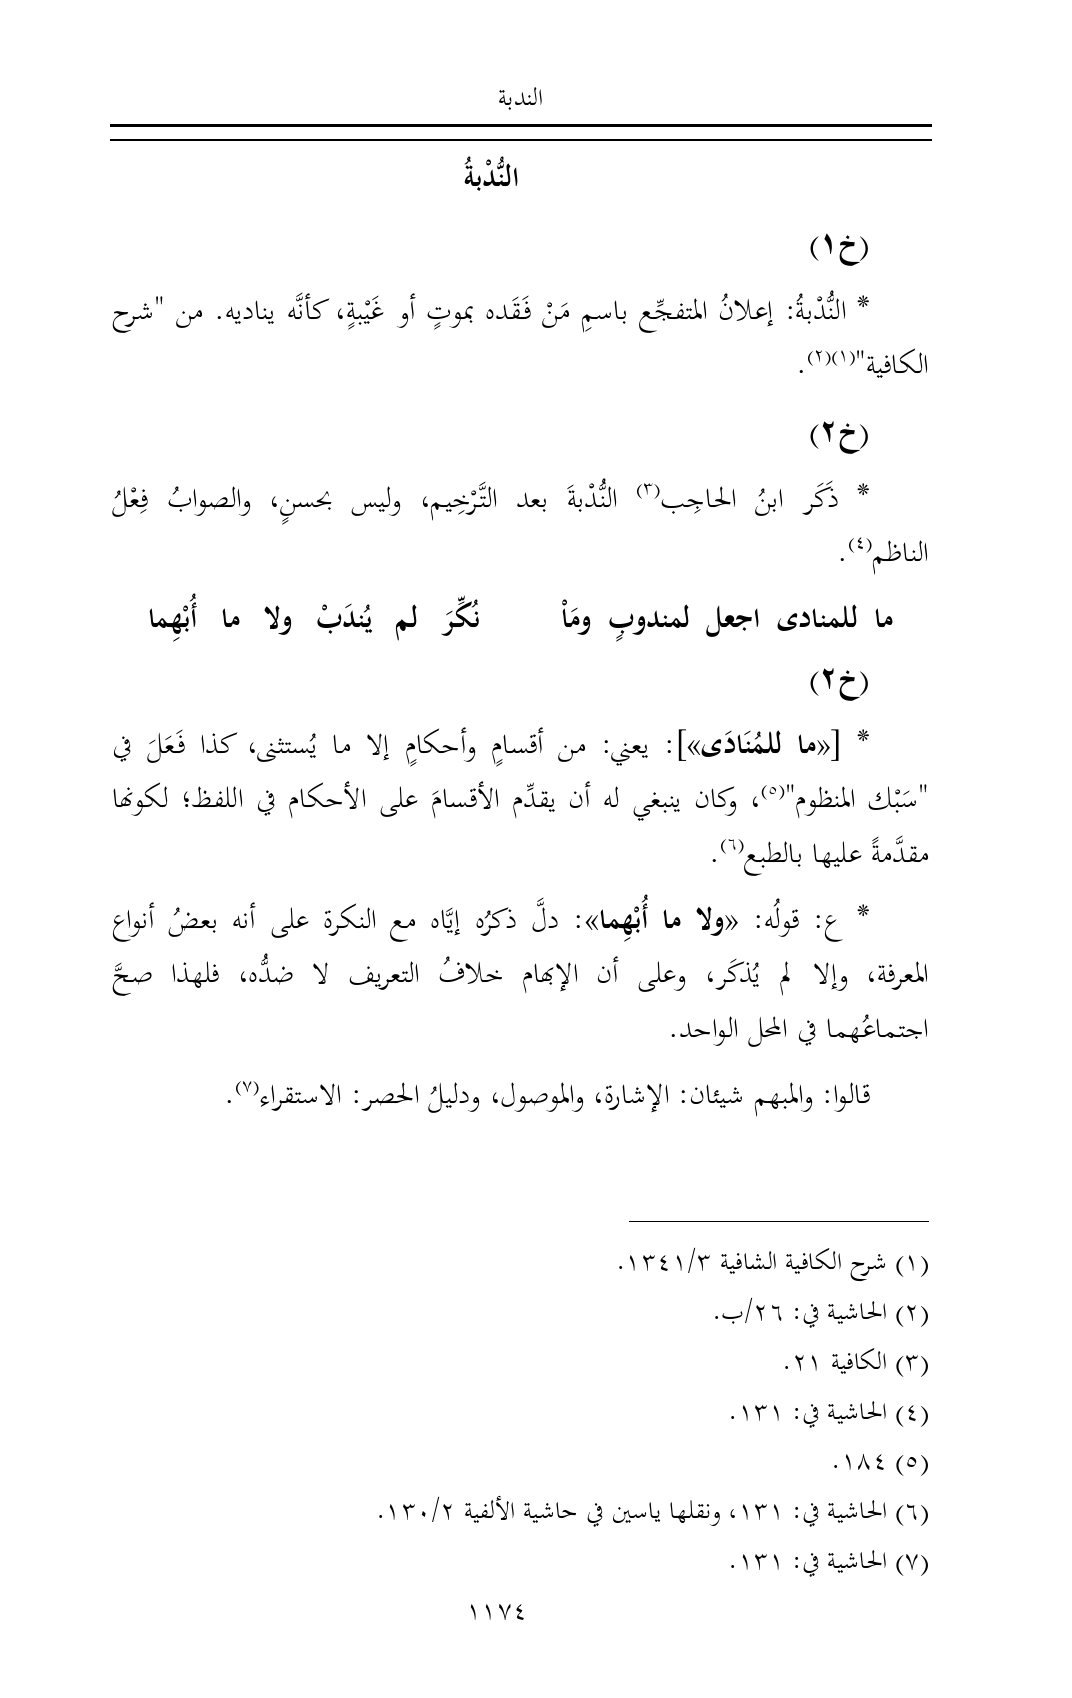 الندبة
النُّدْبةُ
(خ١)
* النُّدْبةُ: إعلانُ المتفجِّع باسمِ مَنْ فَقَده بموتٍ أو غَيْبةٍ، كأنَّه يناديه. من "شرح
الكافية"(١)(٢).
(خ٢)
* ذَكَر ابنُ الحاجِب(٣) النُّدْبةَ بعد التَّرْخِيم، وليس بحسنٍ، والصوابُ فِعْلُ
الناظم(٤).
ما للمنادى اجعل لمندوبٍ ومَاْ نُكِّرَ لم يُندَبْ ولا ما أُبْهِما
(خ٢)
* [«ما للمُنَادَى»]: يعني: من أقسامٍ وأحكامٍ إلا ما يُستثنى، كذا فَعَلَ في
"سَبْك المنظوم"(٥)، وكان ينبغي له أن يقدِّم الأقسامَ على الأحكام في اللفظ؛ لكونها
مقدَّمةً عليها بالطبع(٦).
* ع: قولُه: «ولا ما أُبْهِما»: دلَّ ذكرُه إيَّاه مع النكرة على أنه بعضُ أنواع
المعرفة، وإلا لم يُذكَر، وعلى أن الإبهام خلافُ التعريف لا ضدُّه، فلهذا صحَّ
اجتماعُهما في المحل الواحد.
قالوا: والمبهم شيئان: الإشارة، والموصول، ودليلُ الحصر: الاستقراء(٧).
(١) شرح الكافية الشافية ١٣٤١/٣.
(٢) الحاشية في: ٢٦/ب.
(٣) الكافية ٢١.
(٤) الحاشية في: ١٣١.
(٥) ١٨٤.
(٦) الحاشية في: ١٣١، ونقلها ياسين في حاشية الألفية ١٣٠/٢.
(٧) الحاشية في: ١٣١.
١١٧٤